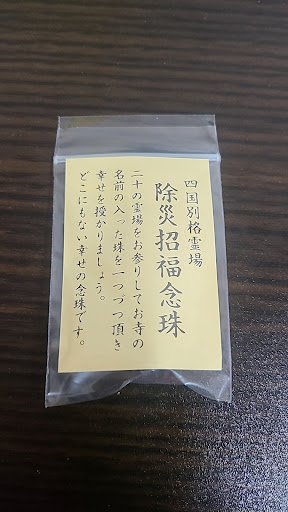 四国別格霊場
除災招福念珠
二十の霊場をお参りしてお寺の
名前の入った珠を一つづつ頂き
幸せを授かりましょう。
どこにもない幸せの念珠です。